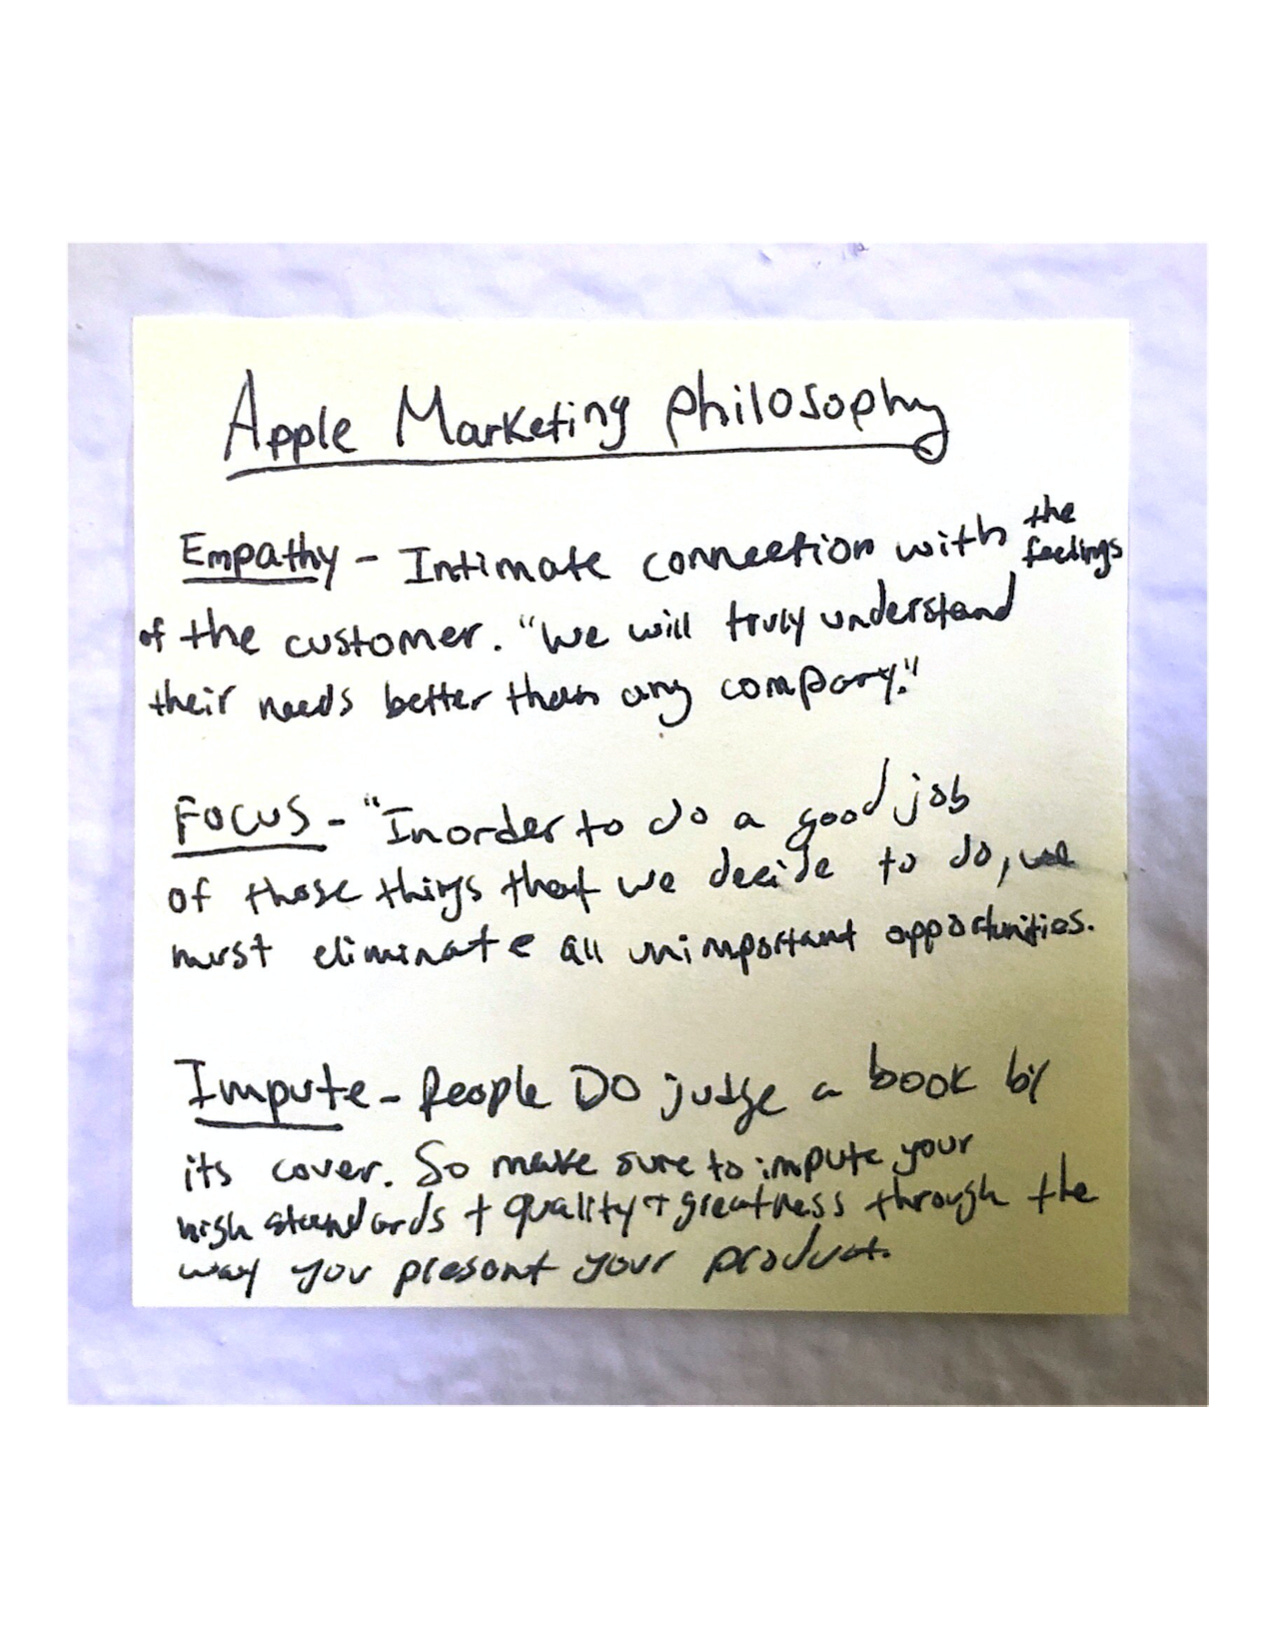 Apple Marketing Philosophy
Empathy - Intimate connection with the feelings
of the customer. "We will truly understand
their needs better than any company."
FOCUS - "Inorder to do a good job
of those things that we decide to do, we
must eliminate all unimportant opportunities.
Impute - People DO judge a book by
its cover. So make sure to impute your
high standards + quality + greatness through the
way you present your product.